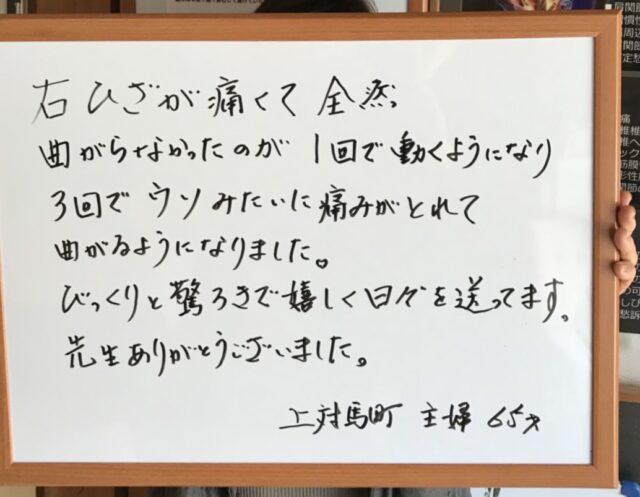 右ひざが痛くて全然
曲がらなかったのが1回で動くようになり
3回でウソみたいに痛みがとれて
曲がるようになりました。
びっくりと驚ろきで嬉しく日々を送ってます。
先生ありがとうございました。
上対馬町 主婦 65才